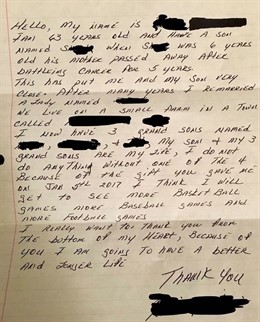 Hello, My name is
I am 63 years old and have a son
named S when S was 6 years
old his mother passed away after
battleing cancer for 5 years.
This has put me and my son very
close. After many years I remarried
a lady named
We live on a small farm in a town
called
I now have 3 grand sons named
, + My son + my 3
grand sons are my life, I do not
do anything without one of the 4
Because of the gift you gave me
on Jan 5th 2017 I think I will
get to see more Basket Ball
games more Baseball games and
more Football games
I really want to thank you from
the bottom of my heart, because of
you I am going to have a better
and longer life
Thank you